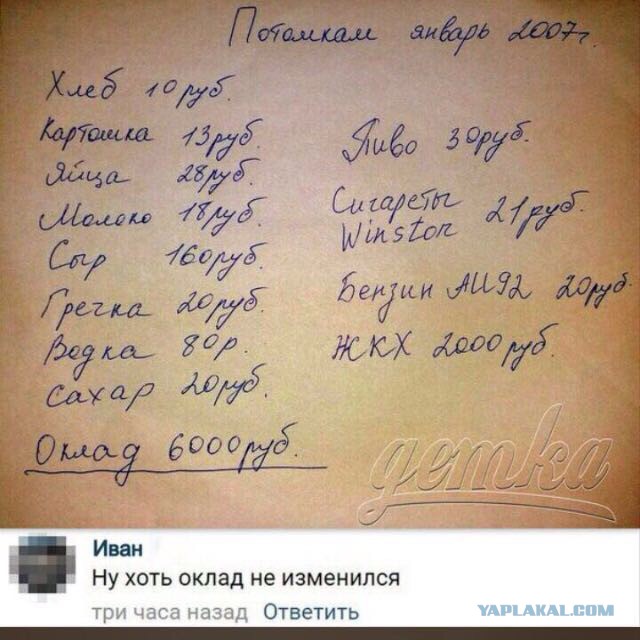 Потомкам январь 2007г.
Хлеб 10руб.
Картошка 13руб.
Яйца 28руб.
Молоко 18руб.
Сыр 160руб.
Гречка 20руб.
Водка 80р.
Сахар 20руб.
Оклад 6000руб.
Пиво 30руб.
Сигареты
Winston 21руб.
Бензин АИ92 20руб.
ЖКХ 2000руб.
детка
Иван
Ну хоть оклад не изменился
три часа назад Ответить
YAPLAKAL.COM